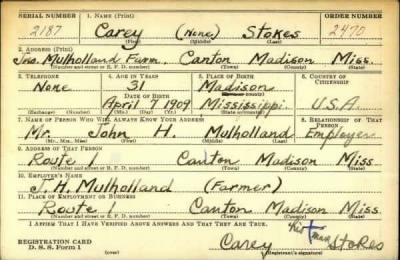 SERIAL NUMBER 1. NAME (Print) ORDER NUMBER
2187 Carey (None) Stokes 2470
(First) (Middle) (Last)
2. ADDRESS (Print)
Jno. Mulholland Farm, Canton Madison Miss.
(Number and street or R. F. D. number) (Town) (County) (State)
3. TELEPHONE 4. AGE IN YEARS 5. PLACE OF BIRTH 6. COUNTRY OF CITIZENSHIP
None 31 Madison
(Town or county)
DATE OF BIRTH
April 7 1909 Mississippi U.S.A.
(Exchange) (Number) (Mo.) (Day) (Yr.) (State or country)
7. NAME OF PERSON WHO WILL ALWAYS KNOW YOUR ADDRESS 8. RELATIONSHIP OF THAT PERSON
Mr. John H. Mulholland Employer
(Mr., Mrs., Miss) (First) (Middle) (Last)
9. ADDRESS OF THAT PERSON
Route 1 Canton Madison Miss.
(Number and street or R. F. D. number) (Town) (County) (State)
10. EMPLOYER'S NAME
J. H. Mulholland (Farmer)
11. PLACE OF EMPLOYMENT OR BUSINESS
Route 1 Canton Madison Miss
(Number and street or R. F. D. number) (Town) (County) (State)
I AFFIRM THAT I HAVE VERIFIED ABOVE ANSWERS AND THAT THEY ARE TRUE.
his
REGISTRATION CARD Carey mark Stokes
D. S. S. Form 1 (Registrant's signature)